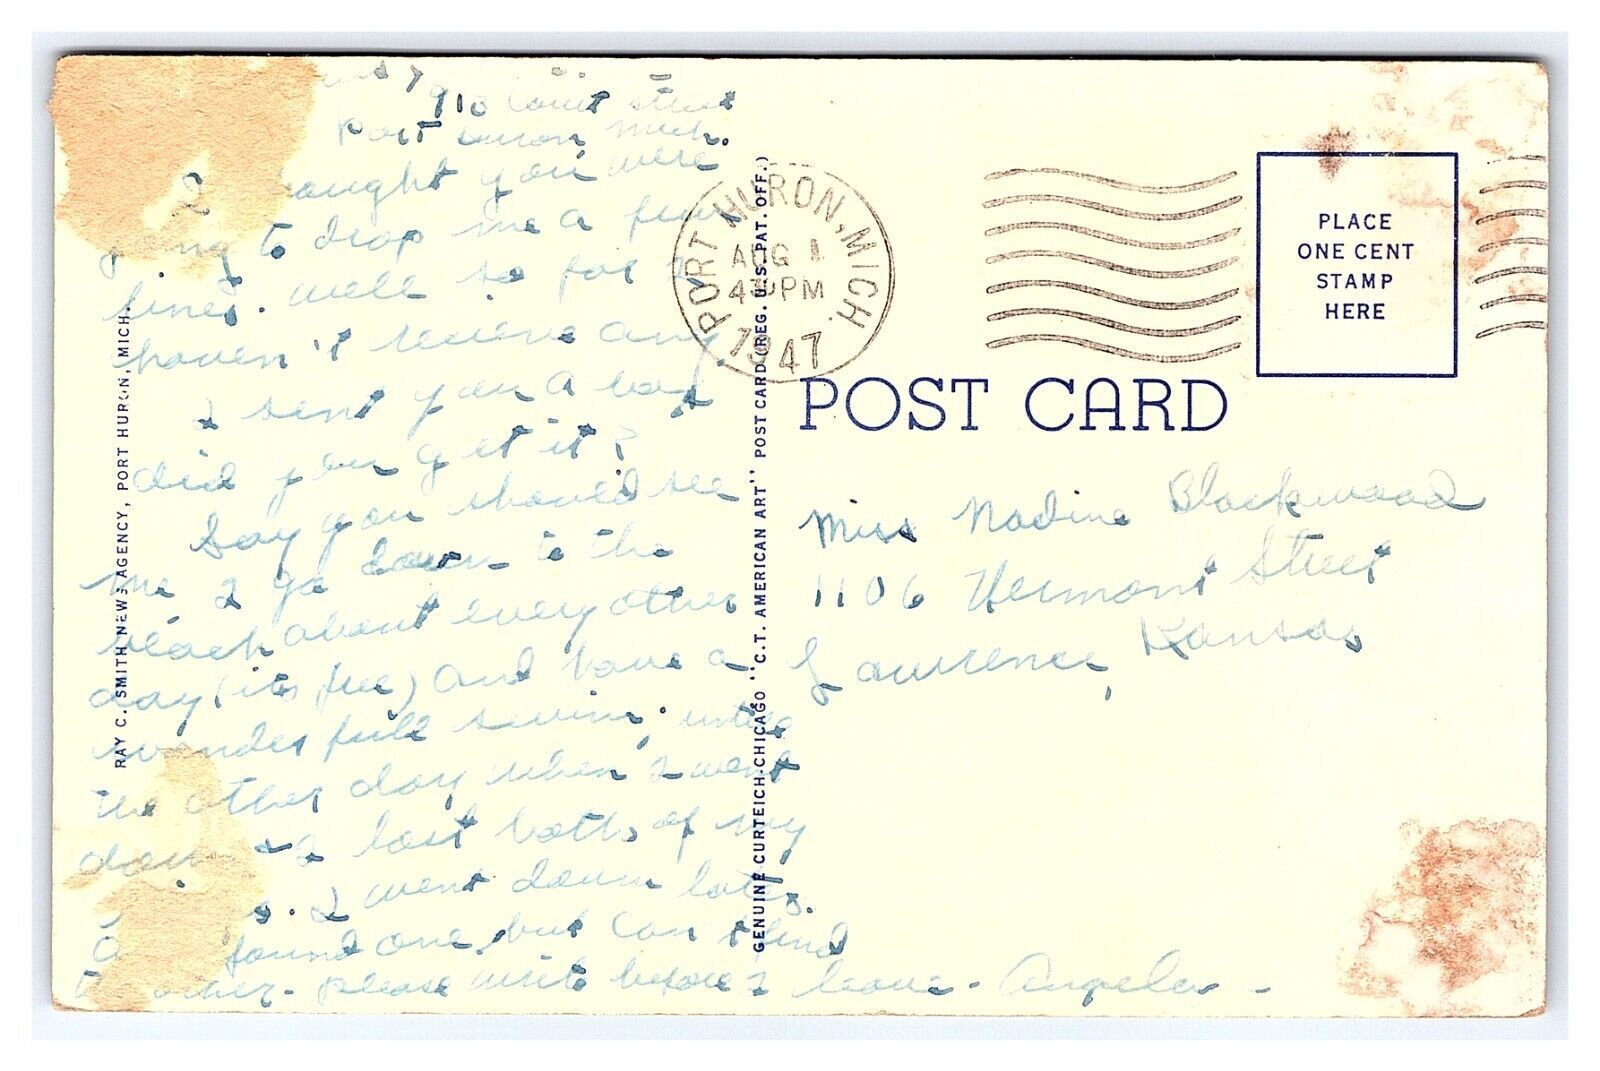 910 Court Street
Port Huron, Mich.
you were
going to drop me a few
lines. Well so far I
haven't receive any.
I sent you a box
did you get it?
Say you should see
me I go down to the
beach about every other
day (its free) and have a
wonderfull swim, until
the other day when I went
down & I lost both of my
I went down later
found one, but can't find
Please write before I leave - Angela -
RAY C. SMITH NEWS AGENCY, PORT HURON, MICH.
GENUINE CURTEICH-CHICAGO "C.T. AMERICAN ART" POST CARD (REG. U.S. PAT. OFF.)
PORT HURON, MICH.
AUG 1
4 PM
1947
PLACE
ONE CENT
STAMP
HERE
POST CARD
Miss Nadine Blackwood
1106 Vermont Street
Lawrence, Kansas